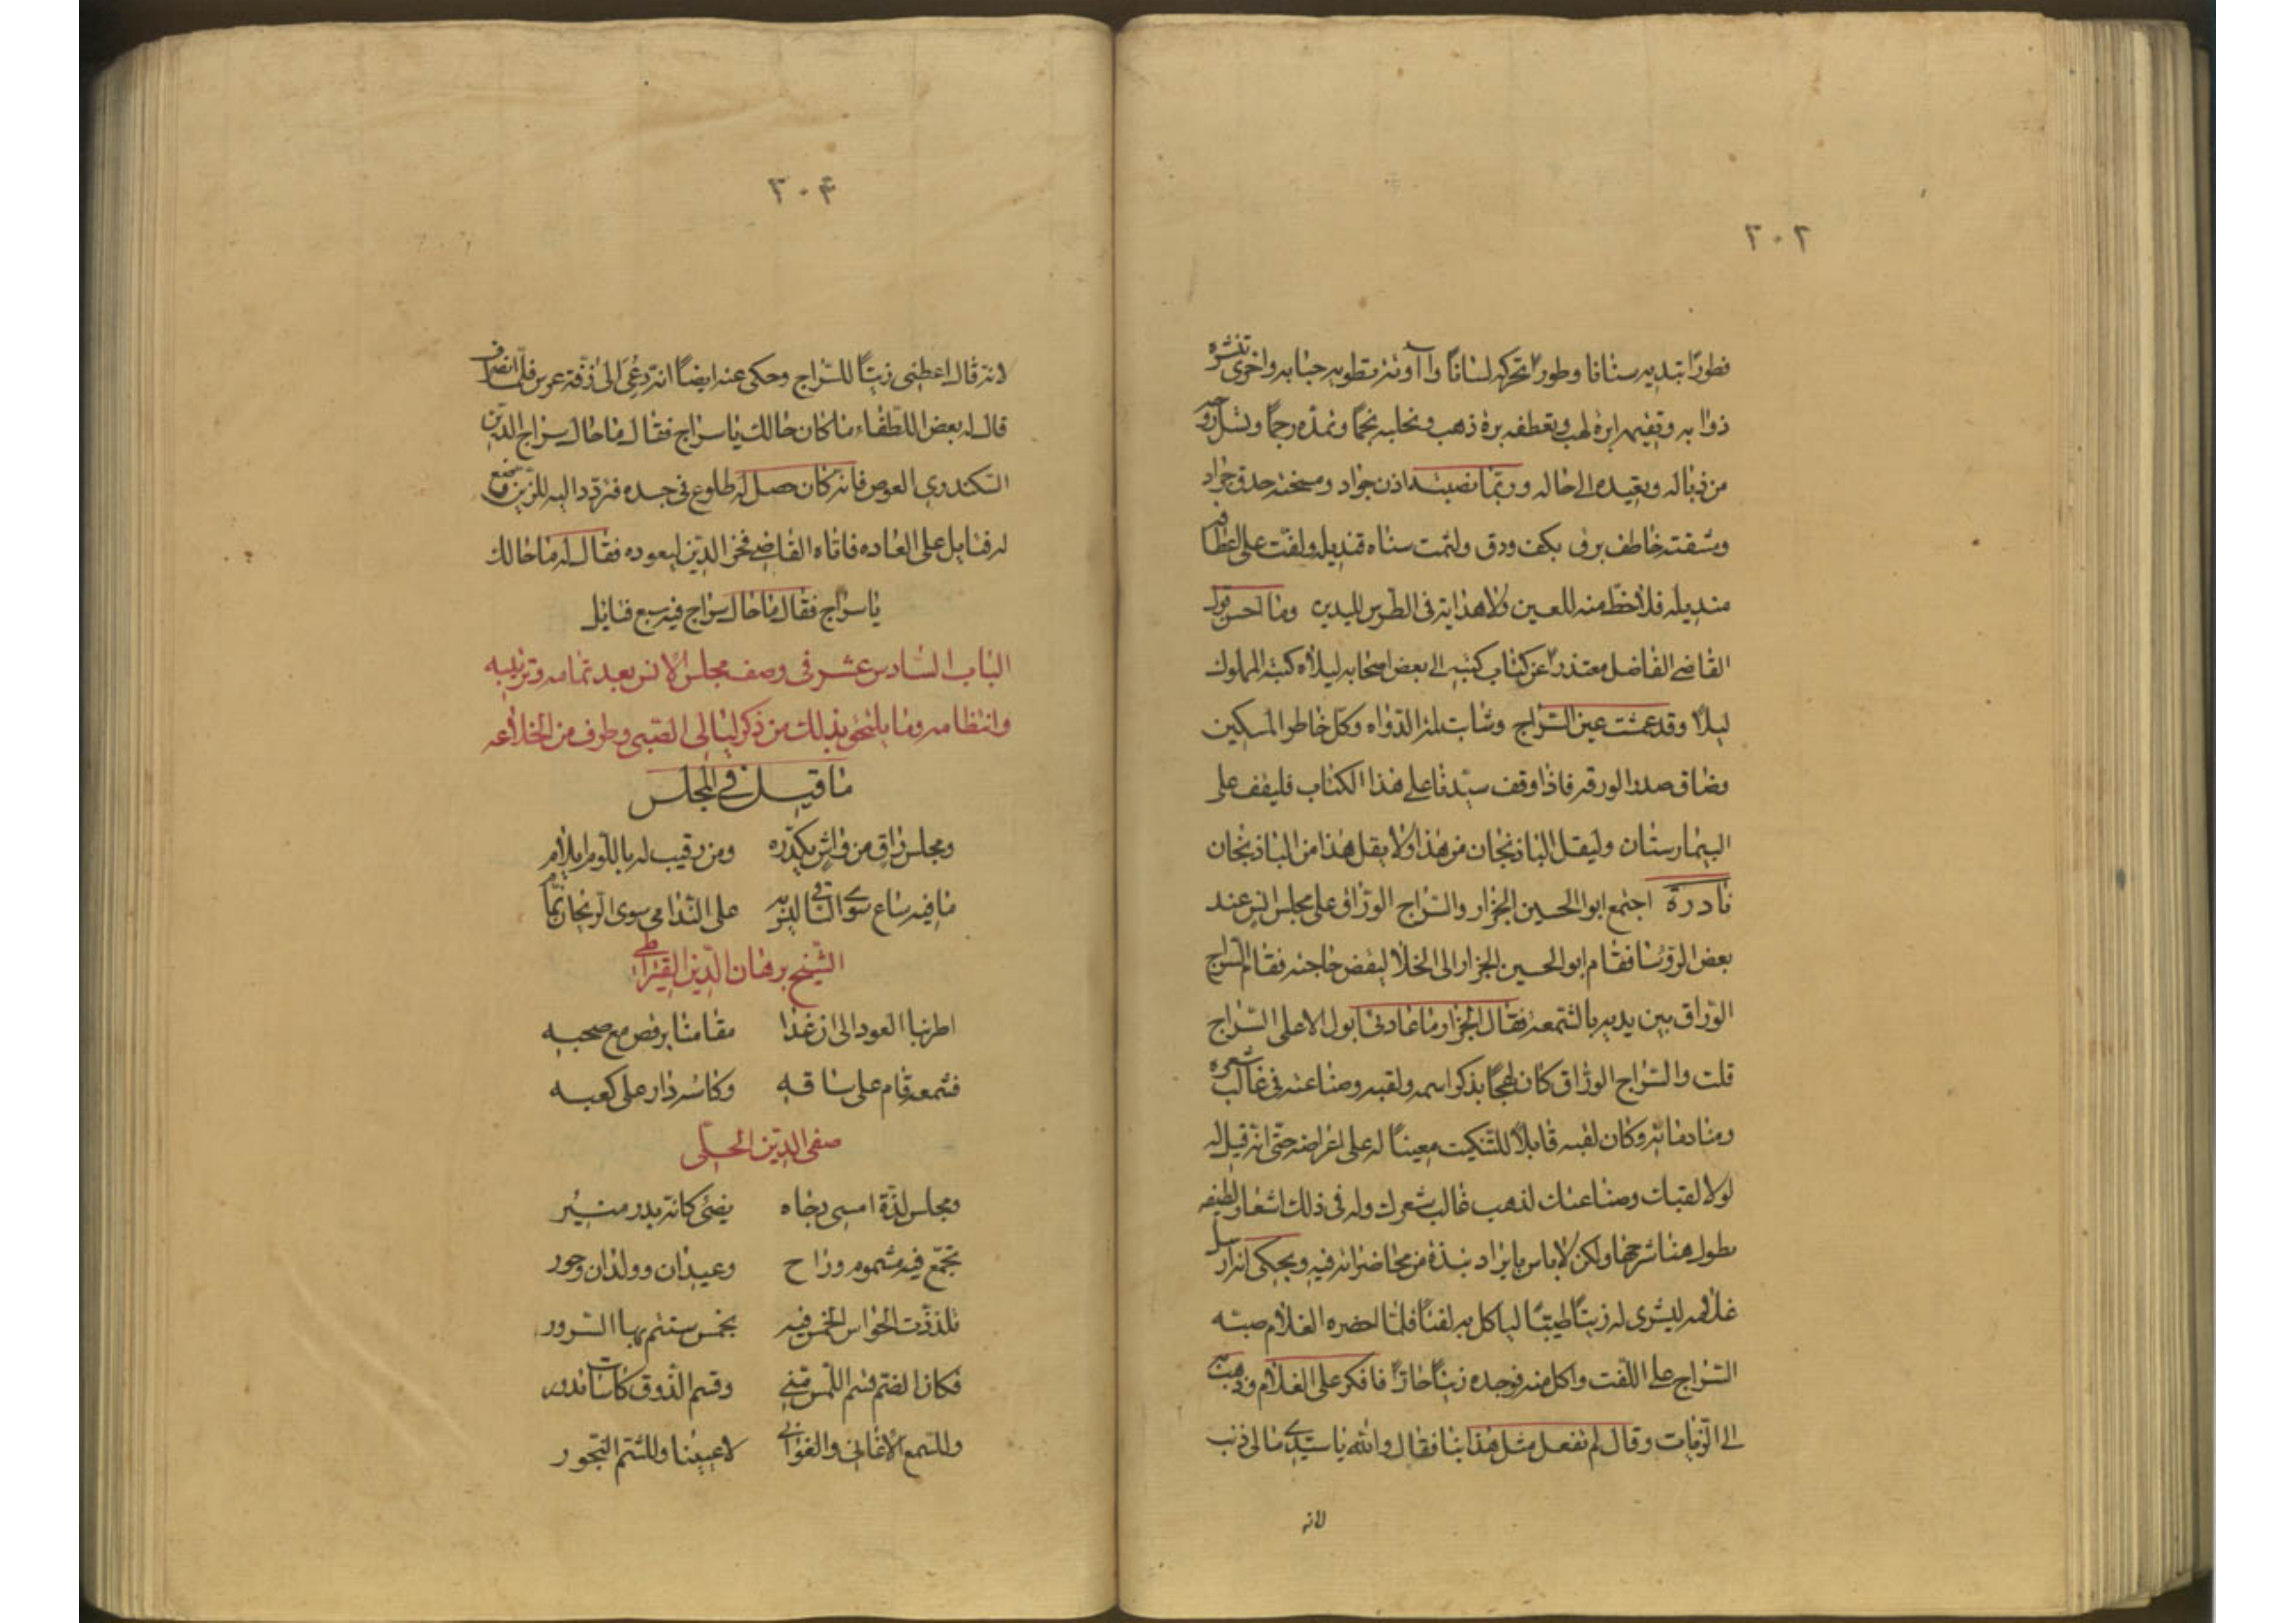 ٢٠٢
فطورًا تبديه سنانا وطورًا تحركه لسانًا وآونة تطويه حبابه واخرى تنشره
ذوابه وتقيمه ابرة لهب وتعطفه برة ذهب وتحلبه نجمًا وتمده رجمًا وتسل روحه
من ذباله وبعيده الى حاله وربما نصبته اذن جواد ومسخته حدق جراد
ومشقته خاطف برق بكف ودق ولثمت سناه قنديله ولفت على اعطافه
منديله فلا حظ منه للعين ولا هداية فى الطرس لليدين وما احسن قول
القاضي الفاضل معتذرًا عن كتاب كتبه الى بعض اصحابه ليلًا كتبه المملوك
ليلًا وقد عمشت عين السراج وشابت لمة الدواه وكل خاطر السكين
وضاق صدر الورقه فاذا وقف سيدنا على هذا الكتاب فليقف على
البيمارستان وليقل الباذنجان من هذا ولا يقل هذا من الباذنجان
نادرة اجتمع ابو الحسين الجزار والسراج الوراق على مجلس انس عند
بعض الرؤسا فقام ابو الحسين الجزار الى الخلا ليقض حاجته فقام السراج
الوراق بين يديه بالشمعه فقال الجزار ما عادتى ابول الا على السراج
قلت والسراج الوراق كان لهجًا بذكر اسمه ولقبه وصناعته فى غالب شعره
ومنادماته وكان لقبه قابلًا للتنكيت معينًا له على اغراضه حتى انه قيل له
لولا لقبك وصناعتك لذهب غالب شعرك وله فى ذلك اشعار لطيفه
يطول هنا شرحها ولكن لا باس بايراد نبذة من محاضراته فيه ويحكى انه ارسل
غلامه ليشرى له زيتًا طيبًا لياكل به لفتًا فلما احضره الغلام صبته
السراج على اللفت واكل منه فوجده زيتًا حارًا فانكر على الغلام وذهب به
الى الزيات وقال لم تفعل مثل هذا بنا فقال والله يا سيدى ما لى ذنب
لانه
٢٠٤
لانه قال اعطنى زيتًا للسراج وحكى عنه ايضًا انه دعى الى زفة عرس فلما انصرف
قال له بعض اللطفاء ما كان حالك يا سراج فقال ما حال سراج الدين
السكندرى العوض فانه كان حصل له طلوع فى جسده فتردد اليه المزين
له فتايل على العاده فاتاه القاضى فخر الدين ليعوده فقال له ما حالك
يا سراج فقال ما حال سراج فيه سبع فتايل
الباب السادس عشر فى وصف مجلس الانس بعد تمامه وترتيبه
وانتظامه وما يلتحق بذلك من ذكر ليالى الصبى وطرف من الخلاعه
ما قيل فى المجلس
ومجلس راق من واش يكدره ومن رقيب له باللوم ايلام
ما فيه ساع سوى الساقى اليه به على الندامى سوى الريحان نمام
الشيخ برهان الدين القيراطى
اطربنا العود الى ان غدا مقامنا يرقص مع صحبه
فشمعه قام على ساقه وكاسه دار على كعبه
صفى الدين الحلى
ومجلس لذة امسى دجاه يضئ كانه بدر منير
تجمع فيه مشموم وراح وعيدان وولدان وحور
تلذذت الحواس الخمس فيه بخمس يستتم بها السرور
فكان الضم قسم اللمس منى وقسم الذوق كاسات تدور
وللسمع الاغانى والغوانى لاعيننا وللشم البخور